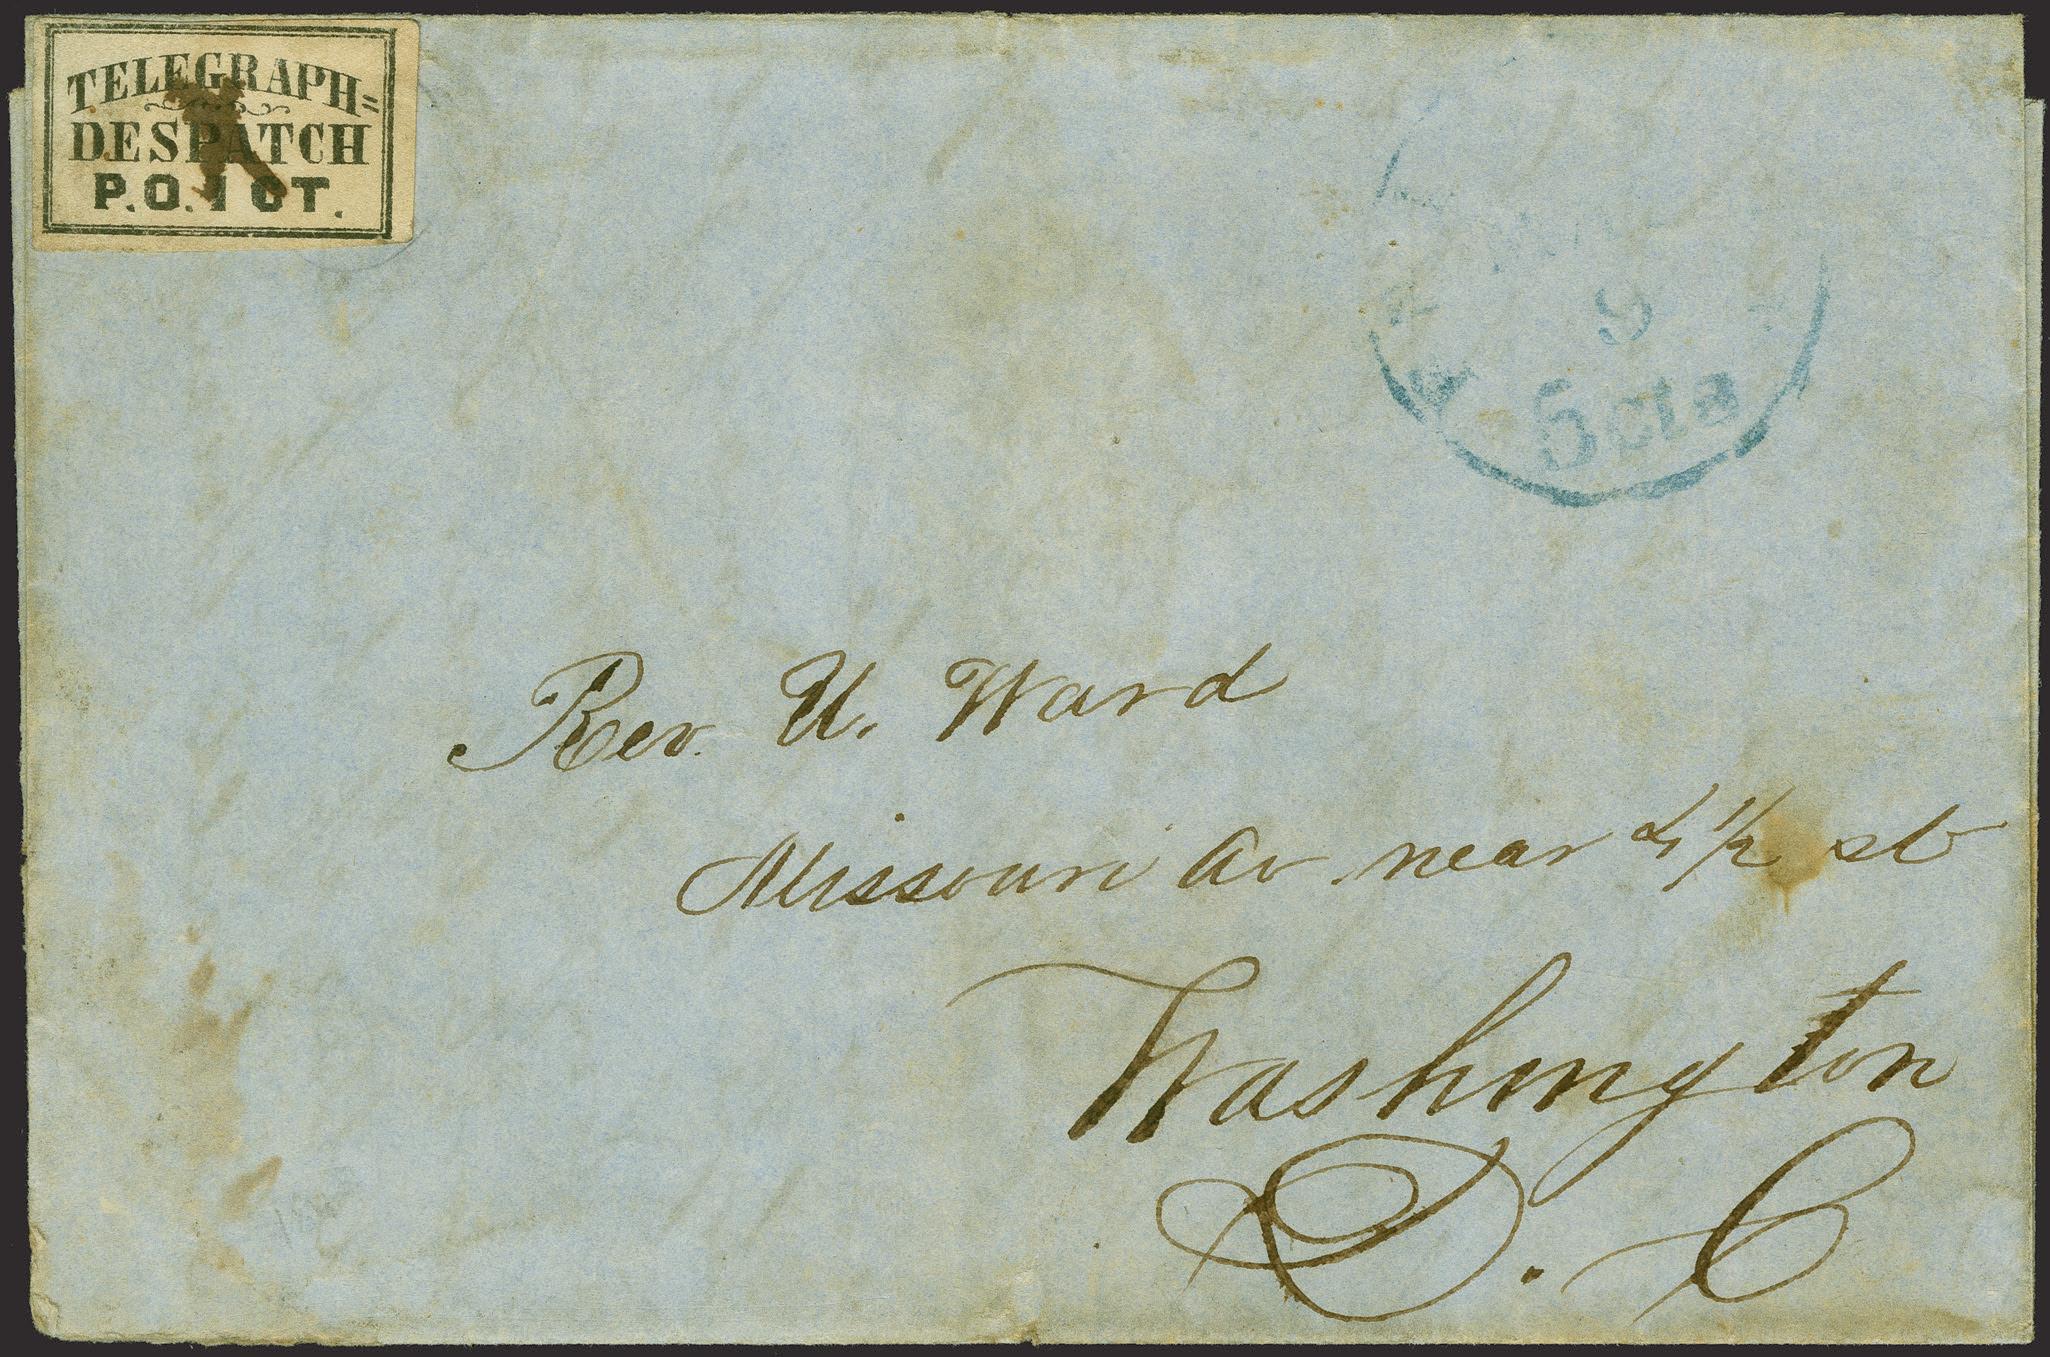 TELEGRAPH=
DESPATCH
P.O. 1 CT.
9
5 cts
Rev. U. Ward
Missouri Av near 4 1/2 st
Washington
D. C